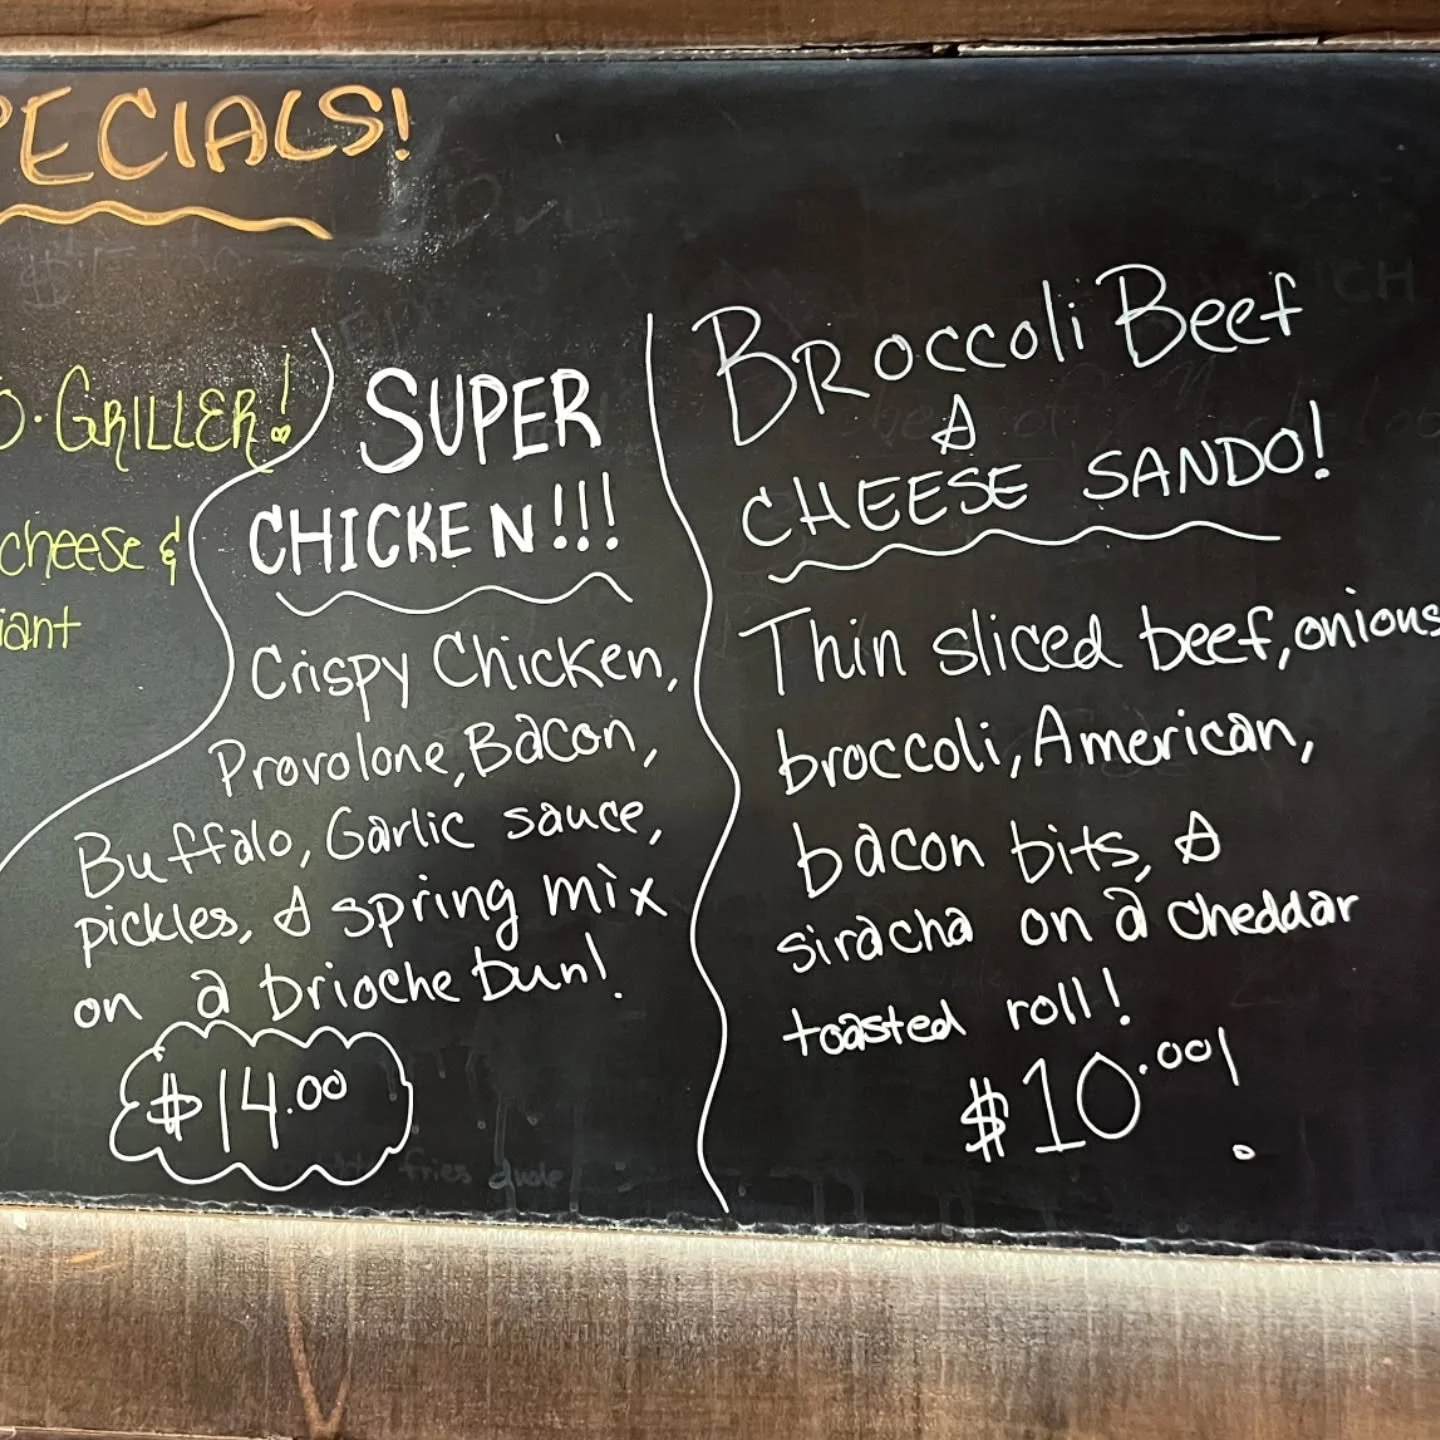 PECIALS!
O·GRILLER!
cheese &
iant
SUPER
CHICKEN!!!
Crispy Chicken,
Provolone, Bacon,
Buffalo, Garlic sauce,
pickles, & spring mix
on a brioche bun!
$14.00
BROCCOLI BEEF
&
CHEESE SANDO!
Thin sliced beef, onions
broccoli, American,
bacon bits, &
siracha on a cheddar
toasted roll!
$10.00!
fries